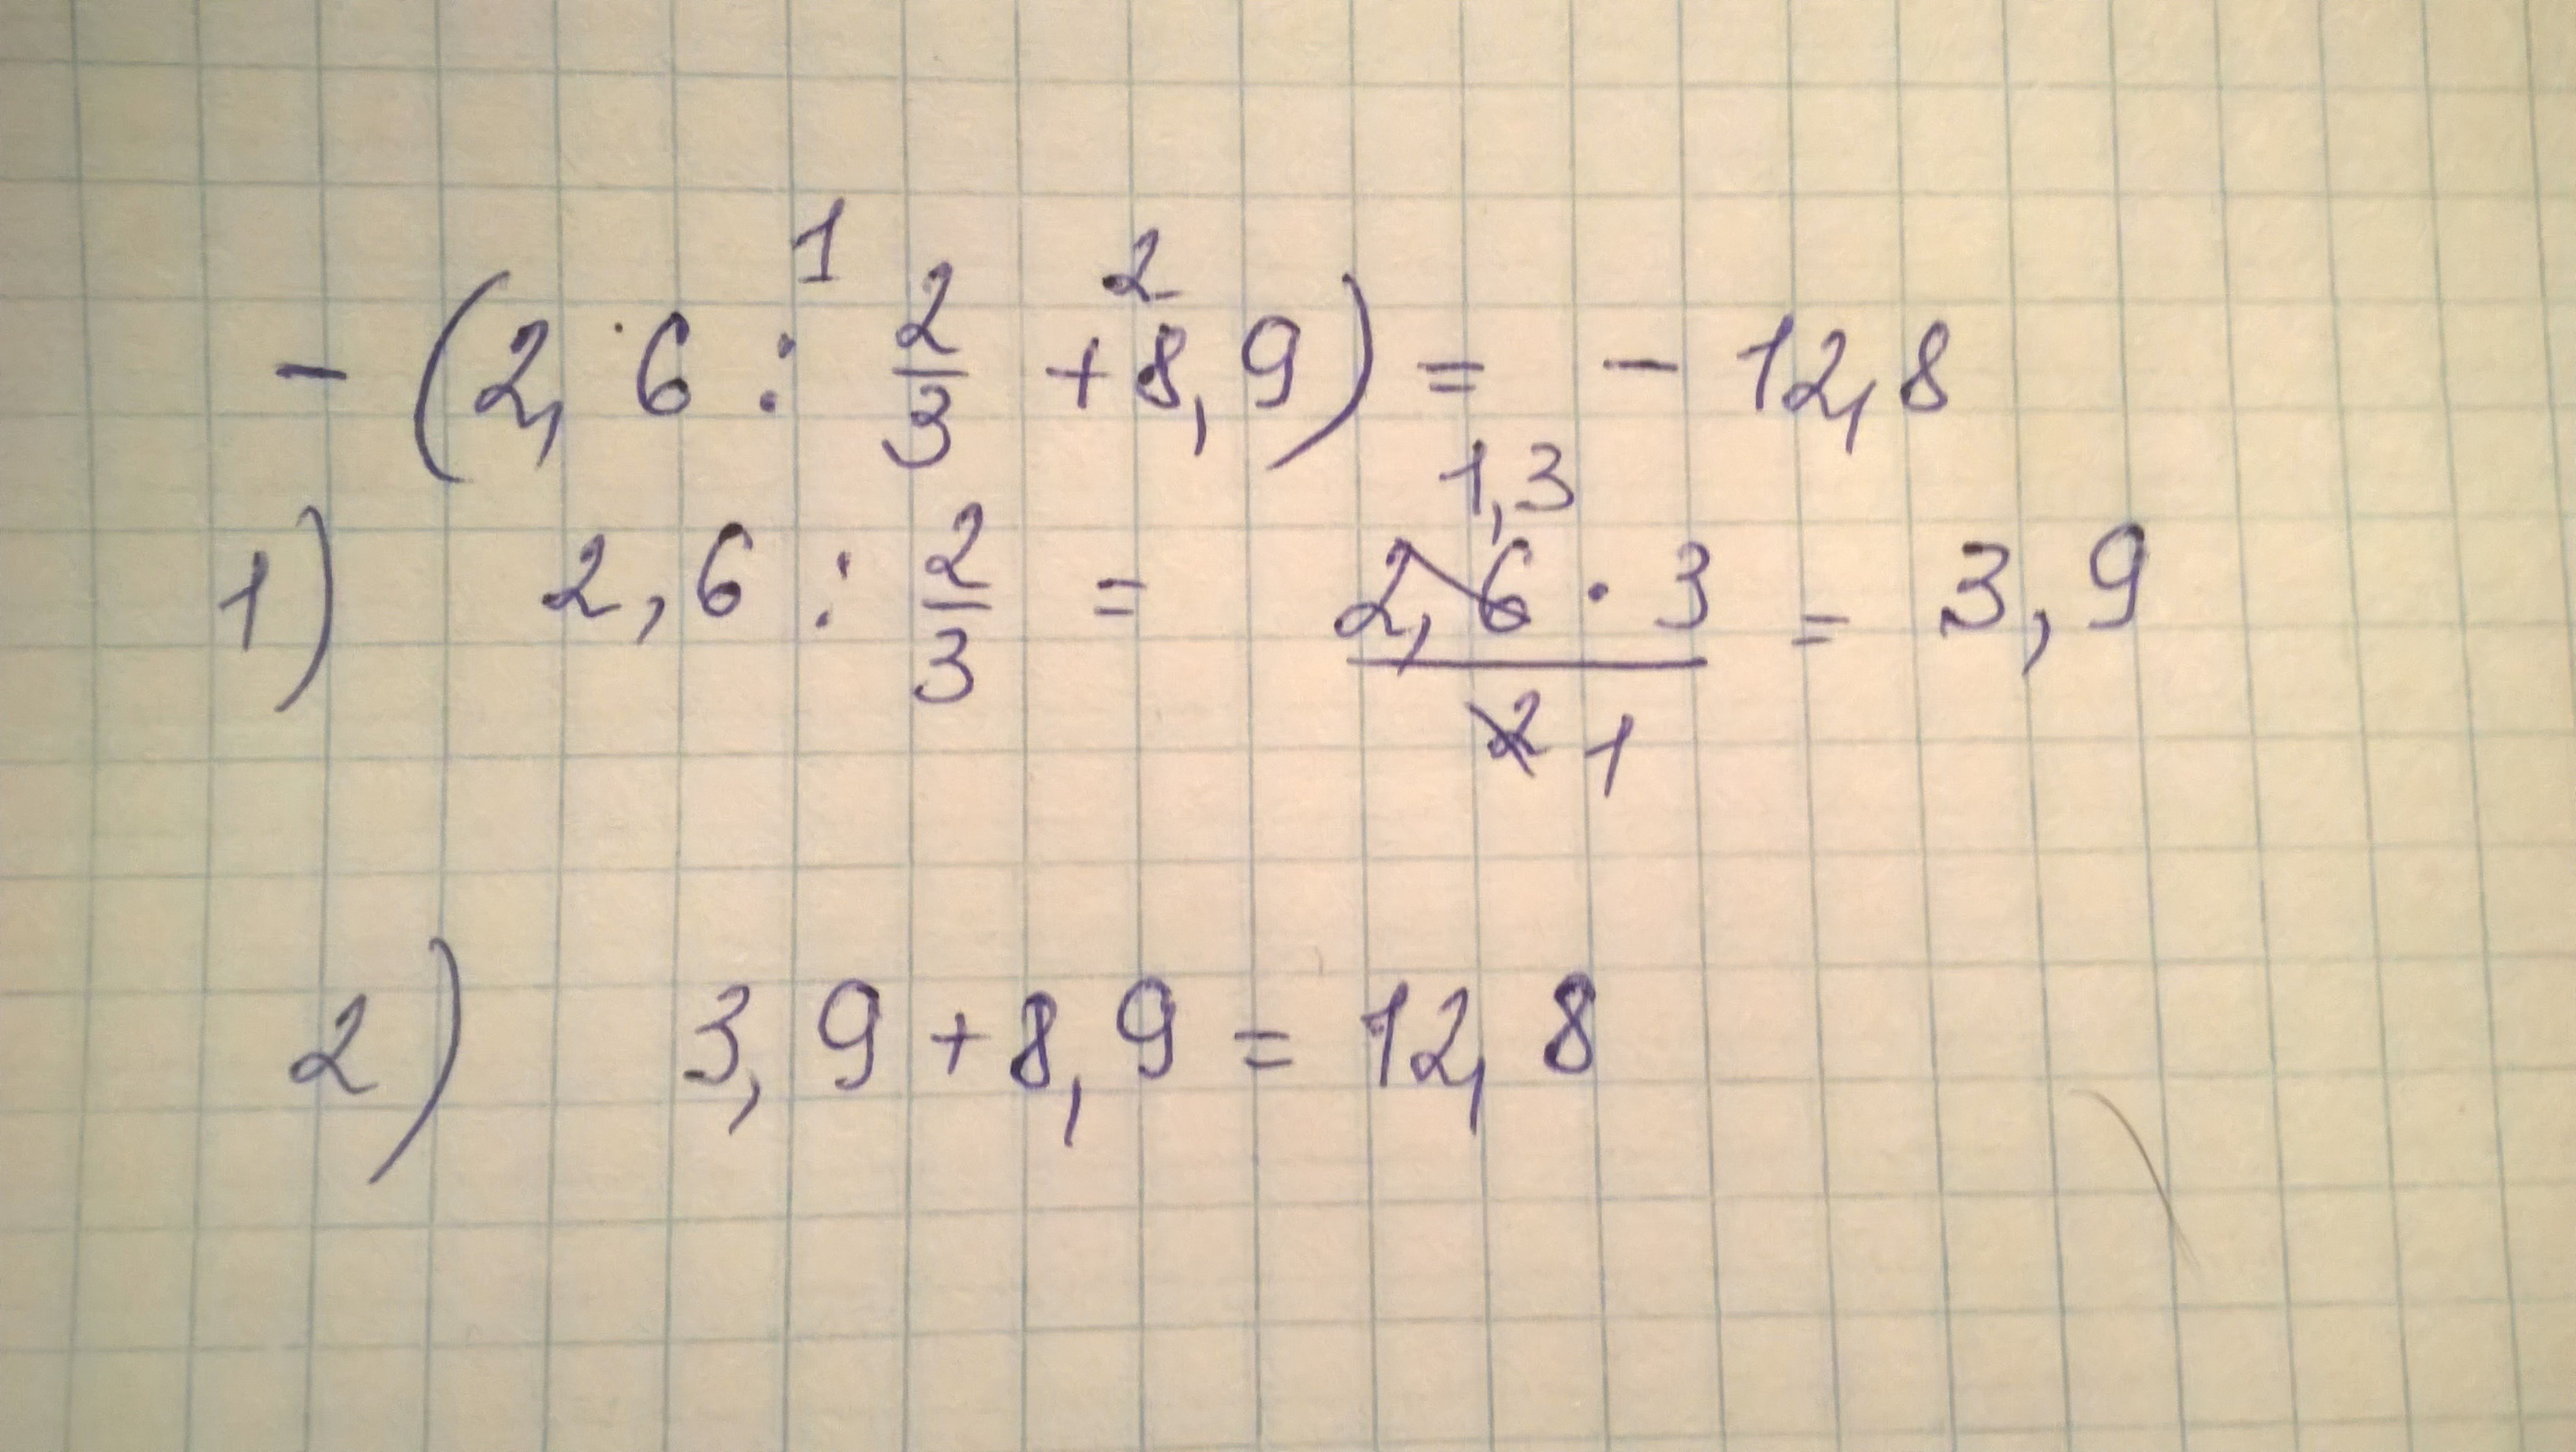 1 2
- (2,6 : 2/3 + 8,9) = - 12,8
1,3
1) 2,6 : 2/3 = 2,6 · 3 / 2 1 = 3,9
2) 3,9 + 8,9 = 12,8